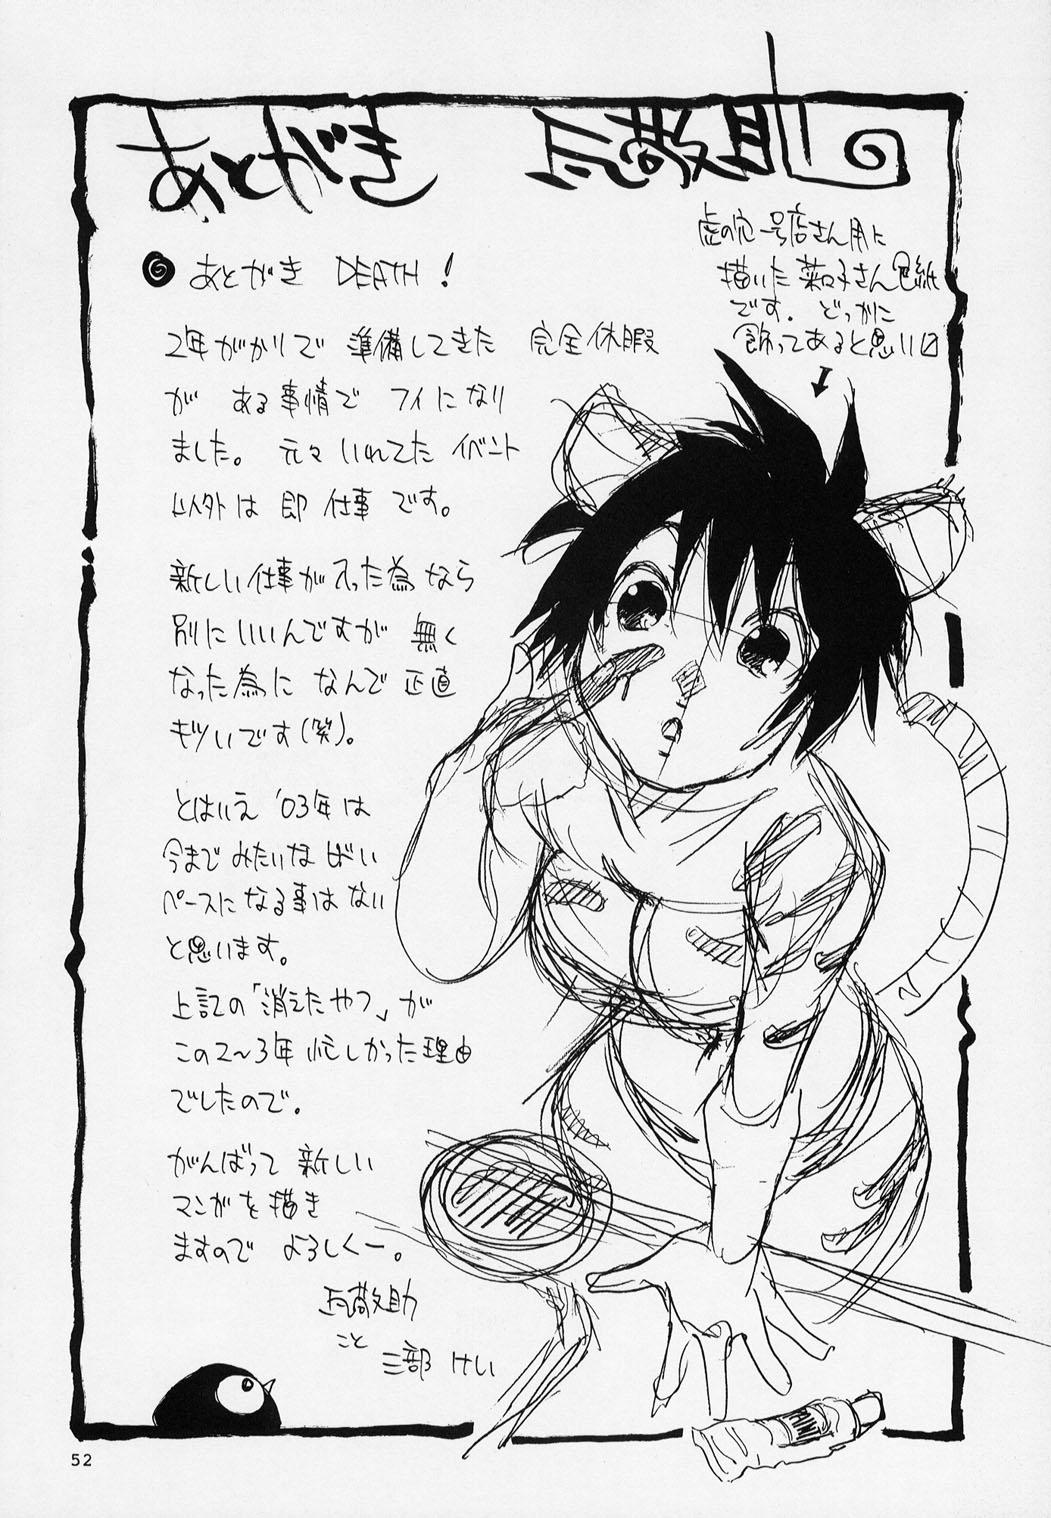 あとがき 瓦敬助
虎の穴一号店さん用に
描いた菜々子さん色紙
です. どっかに
飾ってあると思い〼
あとがき DEATH!
2年がかりで 準備してきた 完全休暇
が ある事情で フイになり
ました。 元々 いれてた イベント
以外は 即 仕事 です。
新しい仕事が入った為なら
別にいいんですが 無く
なった為に なんで 正直
キツいです(笑)。
とはいえ '03年は
今まで みたいな ばい
ペースに なる事は ない
と思います。
上記の「消えたやつ」が
この2〜3年 忙しかった理由
でしたので.
がんばって 新しい
マンガを 描き
ますので よろしくー。
瓦敬助
こと
三部 けい
PAINT
52